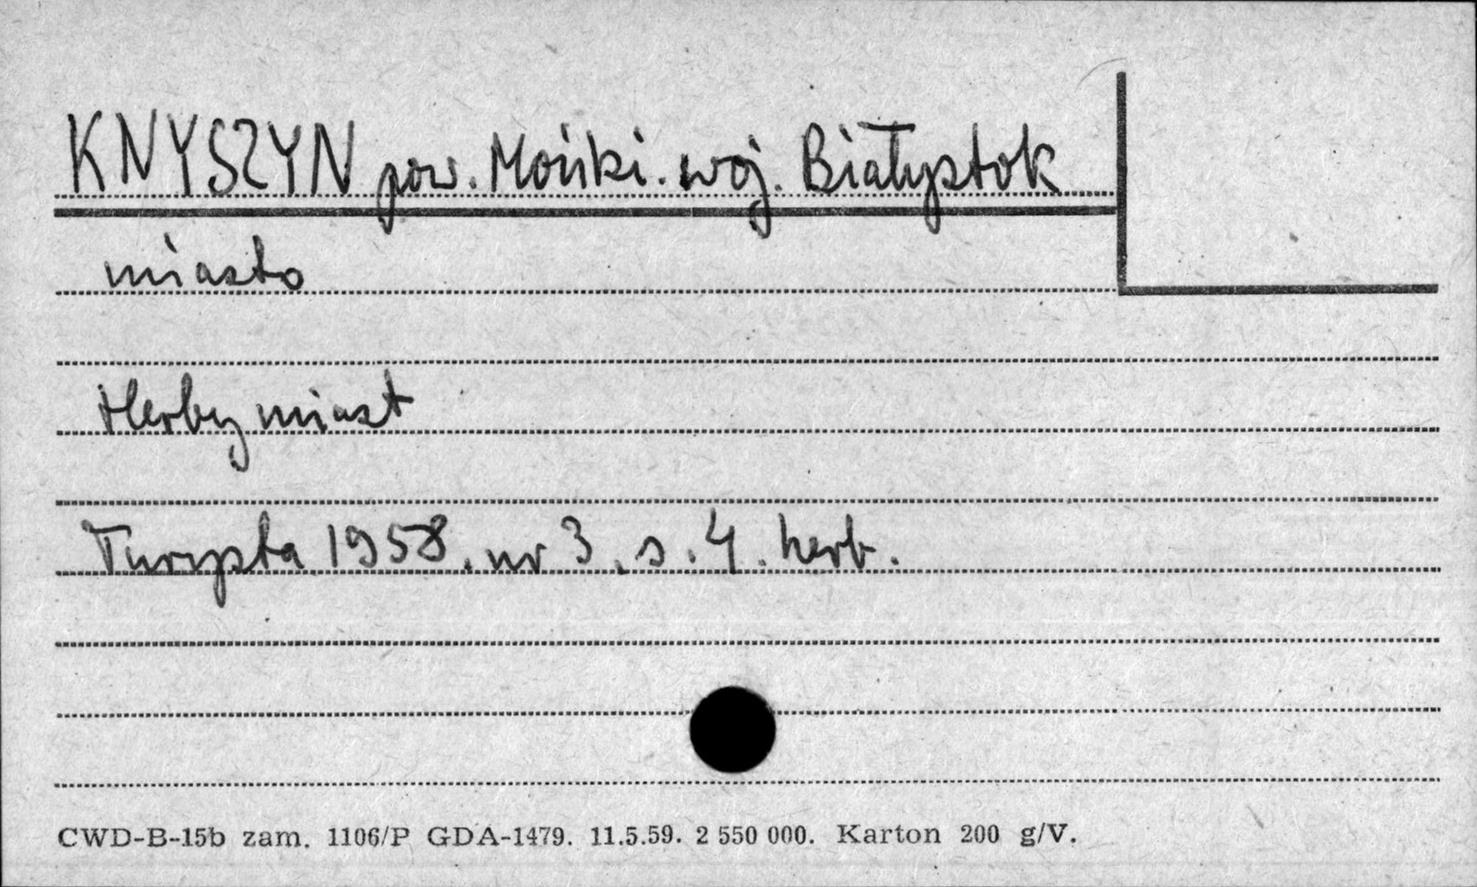 KNYSZYN pow. Mońki. woj. Białystok
miasto
Herby miast
Turysta 1958. nr 3. s. 4. herb.
CWD-B-15b zam. 1106/P GDA-1479. 11.5.59. 2 550 000. Karton 200 g/V.